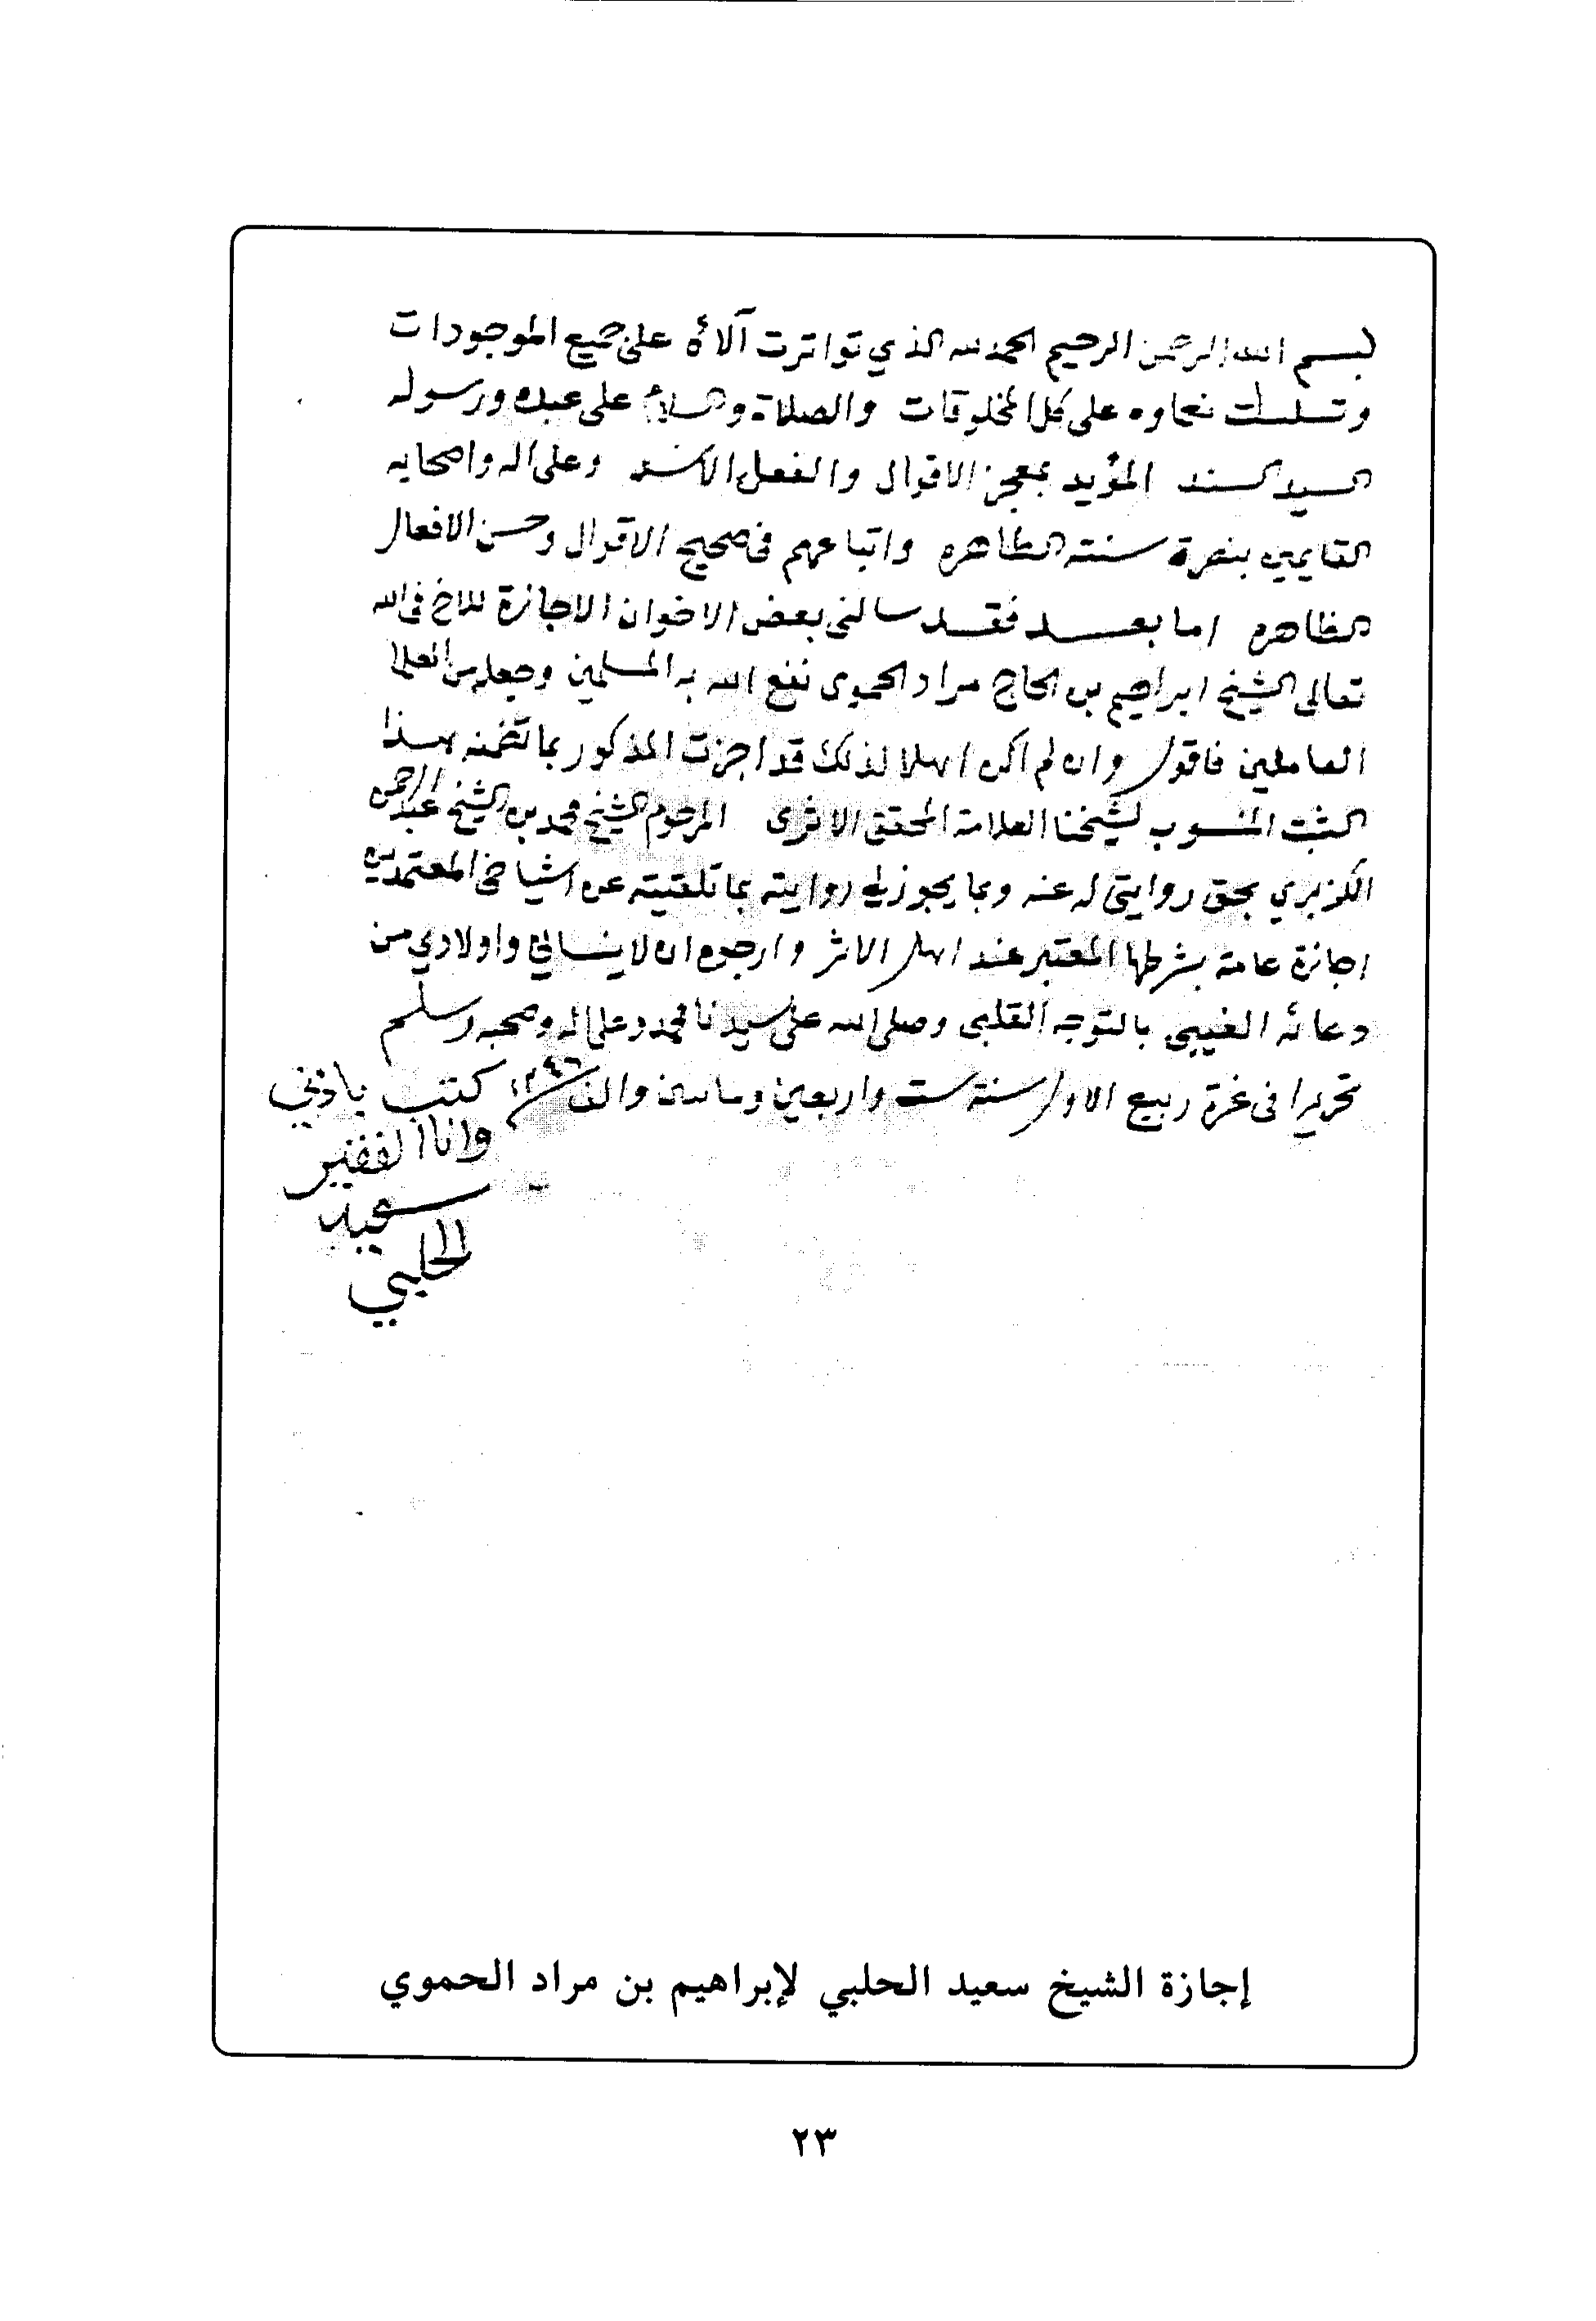 بسم الله الرحمن الرحيم الحمد لله الذي تواترت آلاؤه على جميع الموجودات
وتسلسلت نعماوه على كل المخلوقات والصلاة والسلام على عبده ورسوله
السيد السند المؤيد بمعجز الاقوال والفعل الاسد وعلى اله واصحابه
القايمين بنصرة سنته الطاهره واتباعهم في صحيح الاقوال وحسن الافعال
الظاهره اما بعد فقد سالني بعض الاخوان الاجازة للاخ في الله
تعالى الشيخ ابراهيم بن الحاج مراد الحموي نفع الله به المسلمين وجعله من العلما
العاملين فاقول وان لم اكن اهلا لذلك قد اجزت المذكور بما تضمنه هذا
الثبت المنسوب لشيخنا العلامة المحقق الاثرى المرحوم الشيخ محمد بن الشيخ عبد الرحمن
الكزبري بحق روايتي له عنه وبما يجوز لي روايته بما تلقيته عن اشياخي المعتمدين
اجازة عامة بشرطها المعتبر عند اهل الاثر وارجوه ان لا ينساني واولادي من
دعائه الغيبي بالتوجه القلبي وصلى الله على سيدنا محمد وعلى اله وصحبه وسلم
تحريرا في غرة ربيع الاول سنة ست واربعين ومايتين والف ١٢٤٦ كتب باذني
وانا الفقير
سعيد
الحلبي
إجازة الشيخ سعيد الحلبي لإبراهيم بن مراد الحموي
٢٣